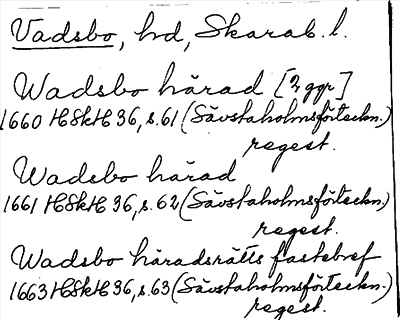 Vadsbo, hd, Skarab. l.
Wadsbo härad [2 ggr]
1660 HSkH 36, s. 61 (Sävstaholmsförteckn.)
regest.
Wadsbo härad
1661 HSkH 36, s. 62 (Sävstaholmsförteckn.)
regest.
Wadsbo häradsrätts fastebref
1663 HSkH 36, s. 63 (Sävstaholmsförteckn.)
regest.